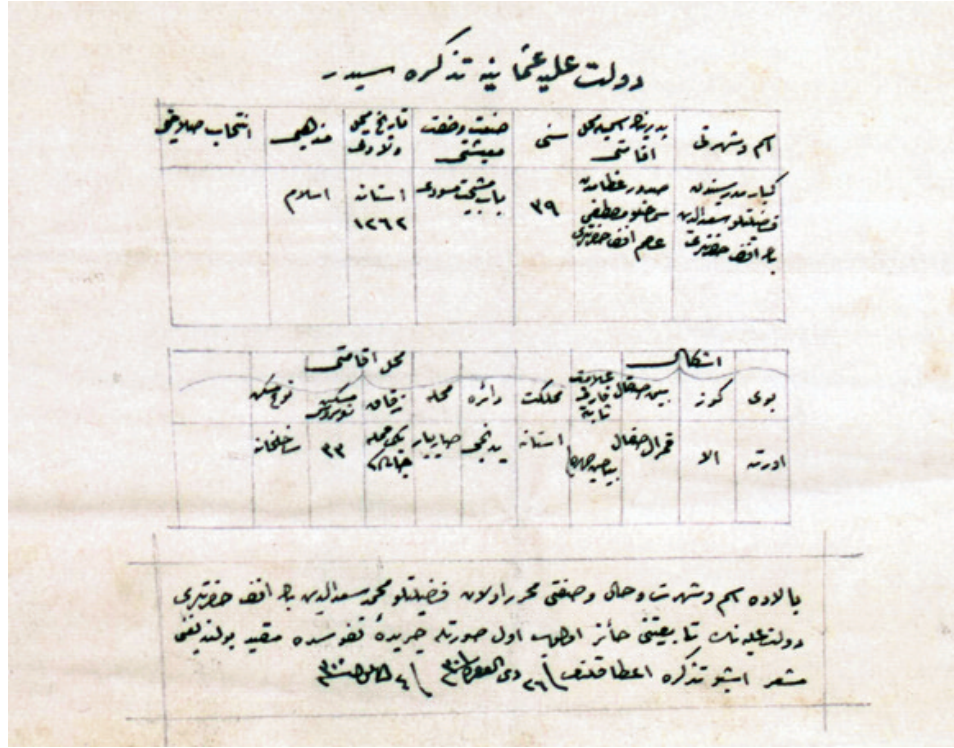 دولت عليه عثمانيه تذكره سيدر
اسم و شهرتى پدرينك اسميله محل اقامتى سنى صنعت و صفت معيشتى تاريخ و محل ولادتى مذهبى انتخاب صلاحيتى
كبار مدرسيندن فضيلتلو سعدالدين بك افندى حضرتلرى صدور عظامدن سماحتلو مصطفى عاصم افندى حضرتلرى ٣٩ باب مشيخت آستانه ١٢٦٢ اسلام
اشكال محل اقامتى
بوى كوز صقال علامت فارقه ثابته مملكت دائره محله زقاق مسكن نومروسى نوع مسكن
اورته الا قمرال صقال آستانه يدنجى صاريار ٢٣ ساحلخانه
بالاده اسم و شهرت و حال و صفتى محرر اولان فضيلتلو محمد سعدالدين بك افندى حضرتلرى
دولت عليه نك تابعيتنى حائز اولوب اول صورتله جريدۀ نفوسده مقيد بولنديغنى
مشعر اشبو تذكره اعطا قلندى ٢٦